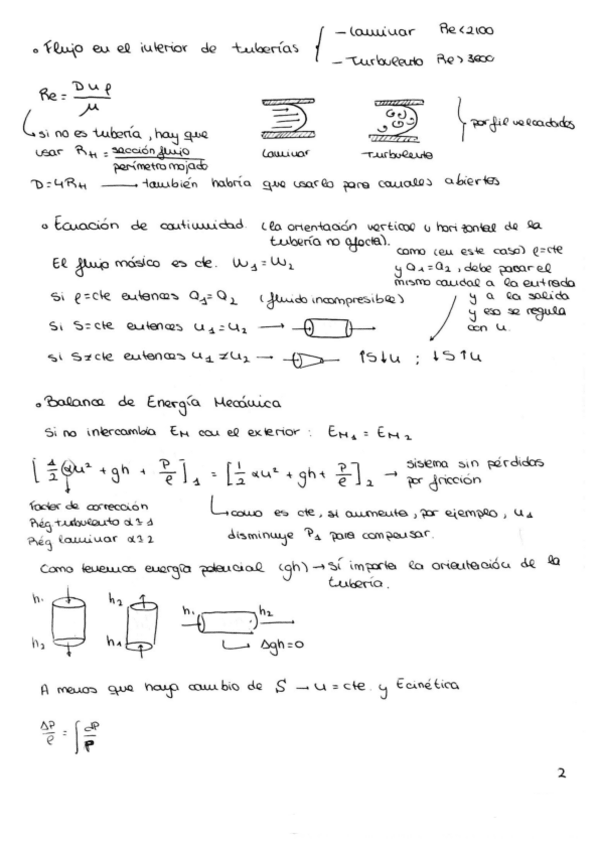 • Flujo en el interior de tuberías { – Laminar Re<2100
– Turbulento Re>3600
Re = Duρ/μ
si no es tubería, hay que
usar RH = sección flujo/perímetro mojado
Laminar Turbulento } perfil velocidades
D=4RH → también habría que usarlo para canales abiertos
• Ecuación de continuidad. (la orientación vertical u horizontal de la
tubería no afecta).
El flujo másico es cte. W1=W2
Si ρ=cte entonces Q1=Q2 (fluido incompresible)
como (en este caso) ρ=cte
y Q1=Q2, debe pasar el
mismo caudal a la entrada
y a la salida
y eso se regula
con u.
Si S=cte entonces u1=u2 →
si S≠cte entonces u1≠u2 → ↑S↓u ; ↓S↑u
• Balance de Energía Mecánica
Si no intercambia EM con el exterior : EM1 = EM2
[½αu² + gh + P/ρ]1 = [½αu² + gh + P/ρ]2 → sistema sin pérdidas
por fricción
Factor de corrección
Rég turbulento α≃1
Rég laminar α≃2
como es cte, si aumenta, por ejemplo, u1
disminuye P1 para compensar.
Como tenemos energía potencial (gh) → sí importa la orientación de la
tubería.
h1 h2 h1 h2
h2 h1 Δgh=0
A menos que haya cambio de S → u = cte. y Ecinética
ΔP/ρ = ∫dP/ρ
2